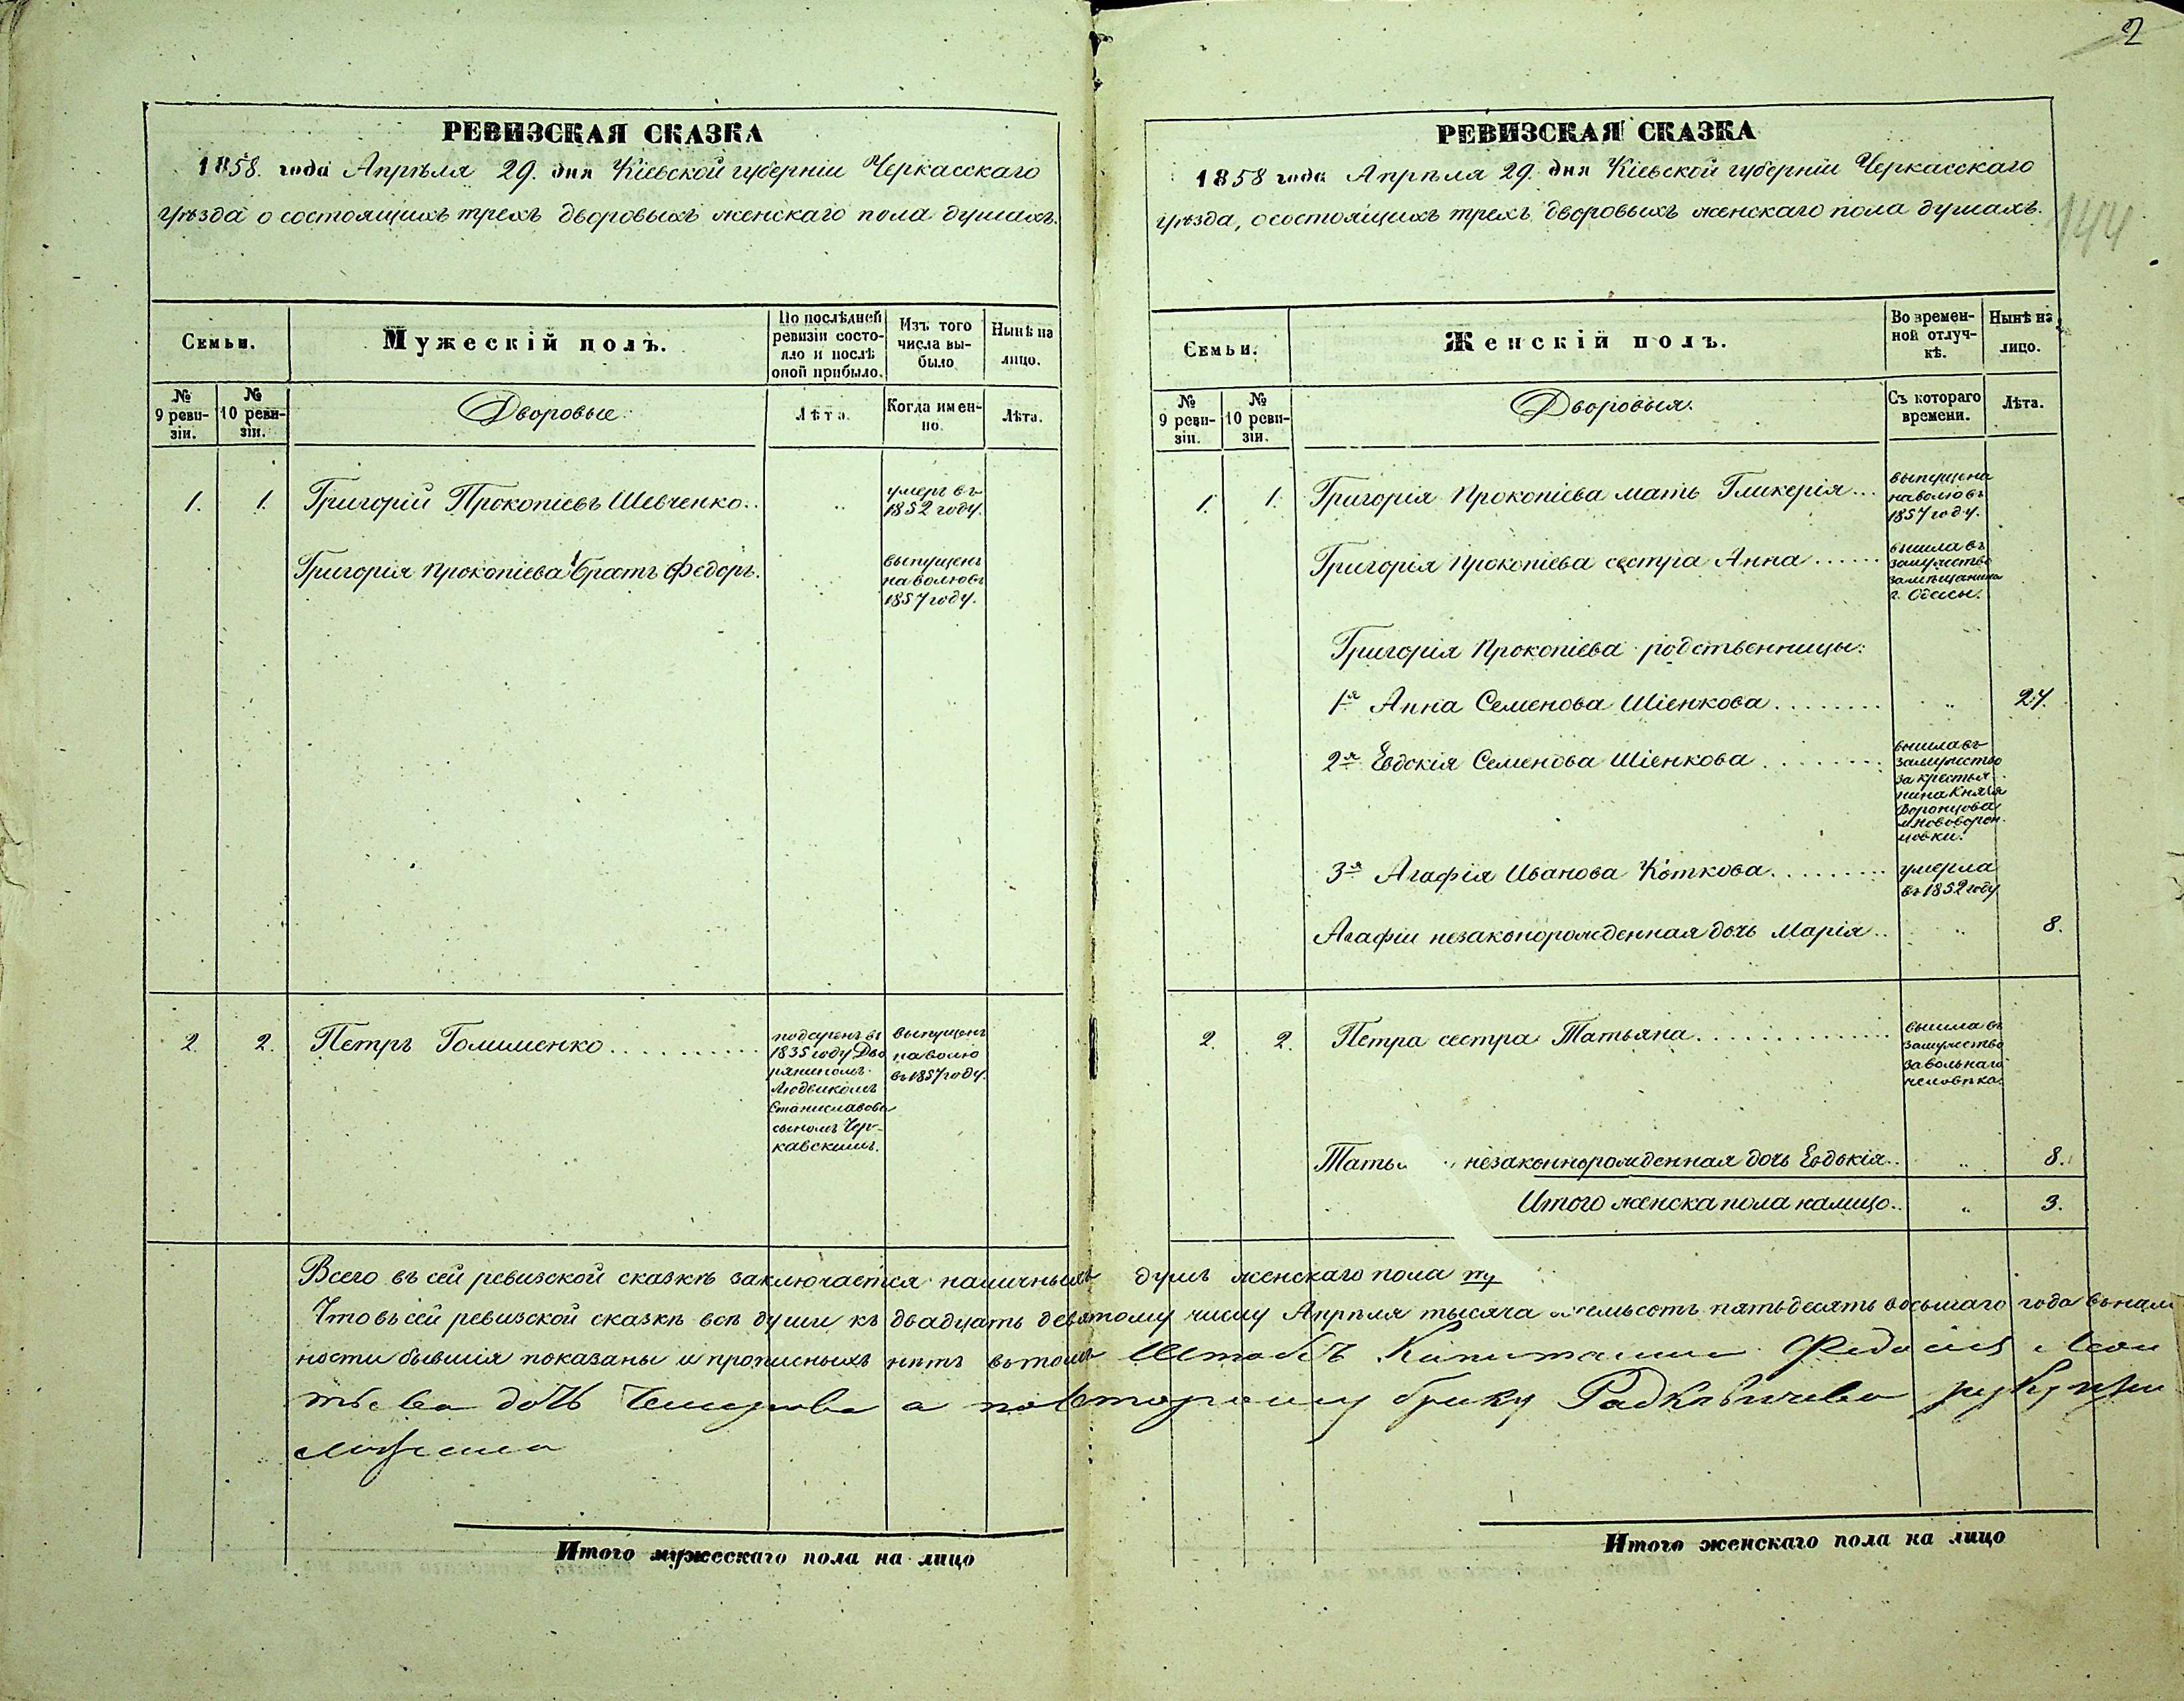 РЕВИЗСКАЯ СКАЗКА
1858. года Апрѣля 29. дня Кіевской губерніи Черкасскаго
уѣзда о состоящихъ трехъ дворовыхъ женскаго пола душахъ.
Семьи.
Мужескій полъ.
По послѣдней
ревизіи состо-
яло и послѣ
оной прибыло.
Изъ того
числа вы-
было
Нынѣ на
лицо.
№
9 реви-
зіи.
№
10 реви-
зіи.
Дворовые.
Лѣта.
Когда имен-
но.
Лѣта.
1. 1. Григорій Прокопіевъ Шевченко.. „
умеръ въ
1852 году.
Григорія Прокопіева братъ Федоръ.
выпущенъ
на волю въ
1857 году.
2. 2. Петръ Голименко..........
подаренъ въ
1835 году Дво
ряниномъ
Людвикомъ
Станиславовы
сыномъ Чер-
кавскимъ.
выпущенъ
на волю
въ 1857 году.
Всего въ сей ревизской сказкѣ заключается наличныхъ душъ женскаго пола
Что въ сей ревизской сказкѣ всѣ души къ двадцать девятому числу Апрѣля тысяча восемьсотъ пятьдесятъ восьмаго года въ нали
ности бывшія показаны и прописныхъ нѣтъ въ томъ Штабсъ Капитанша Федосія Леон
тьева дочь а повторому браку Радкѣвичева руку при
ложила
Итого мужескаго пола на лицо
2
144
РЕВИЗСКАЯ СКАЗКА
1858 года Апрѣля 29. дня Кіевской губерніи Черкасскаго
уѣзда, о состоящихъ трехъ дворовыхъ женскаго пола душахъ.
Семьи.
Женскій полъ.
Во времен-
ной отлуч-
кѣ.
Нынѣ на
лицо.
№
9 реви-
зіи.
№
10 реви-
зіи.
Дворовыя.
Съ котораго
времени.
Лѣта.
1. 1. Григорія Прокопіева мать Гликерія...
выпущена
на волю въ
1857 году.
Григорія Прокопіева сестра Анна......
вышла въ
замужство
за мѣщанина
г. Одесы.
Григорія Прокопіева родственницы:
1я Анна Семенова Шіенкова........ „ 27.
2я Евдокія Семенова Шіенкова........
вышла въ
замужство
за крестья
нина Князя
Воронцова
м. Нововорон-
цовки.
3я Агафія Иванова Коткова.........
умерла
въ 1852 году
Агафіи незаконорожденная дочь Марія.. „ 8.
2. 2. Петра сестра Татьяна..............
вышла въ
замужство
за вольнаго
человѣка.
Тать незаконнорожденная дочь Евдокія.. „ 8.
Итого женска пола налицо.. „ 3.
Итого женскаго пола на лицо